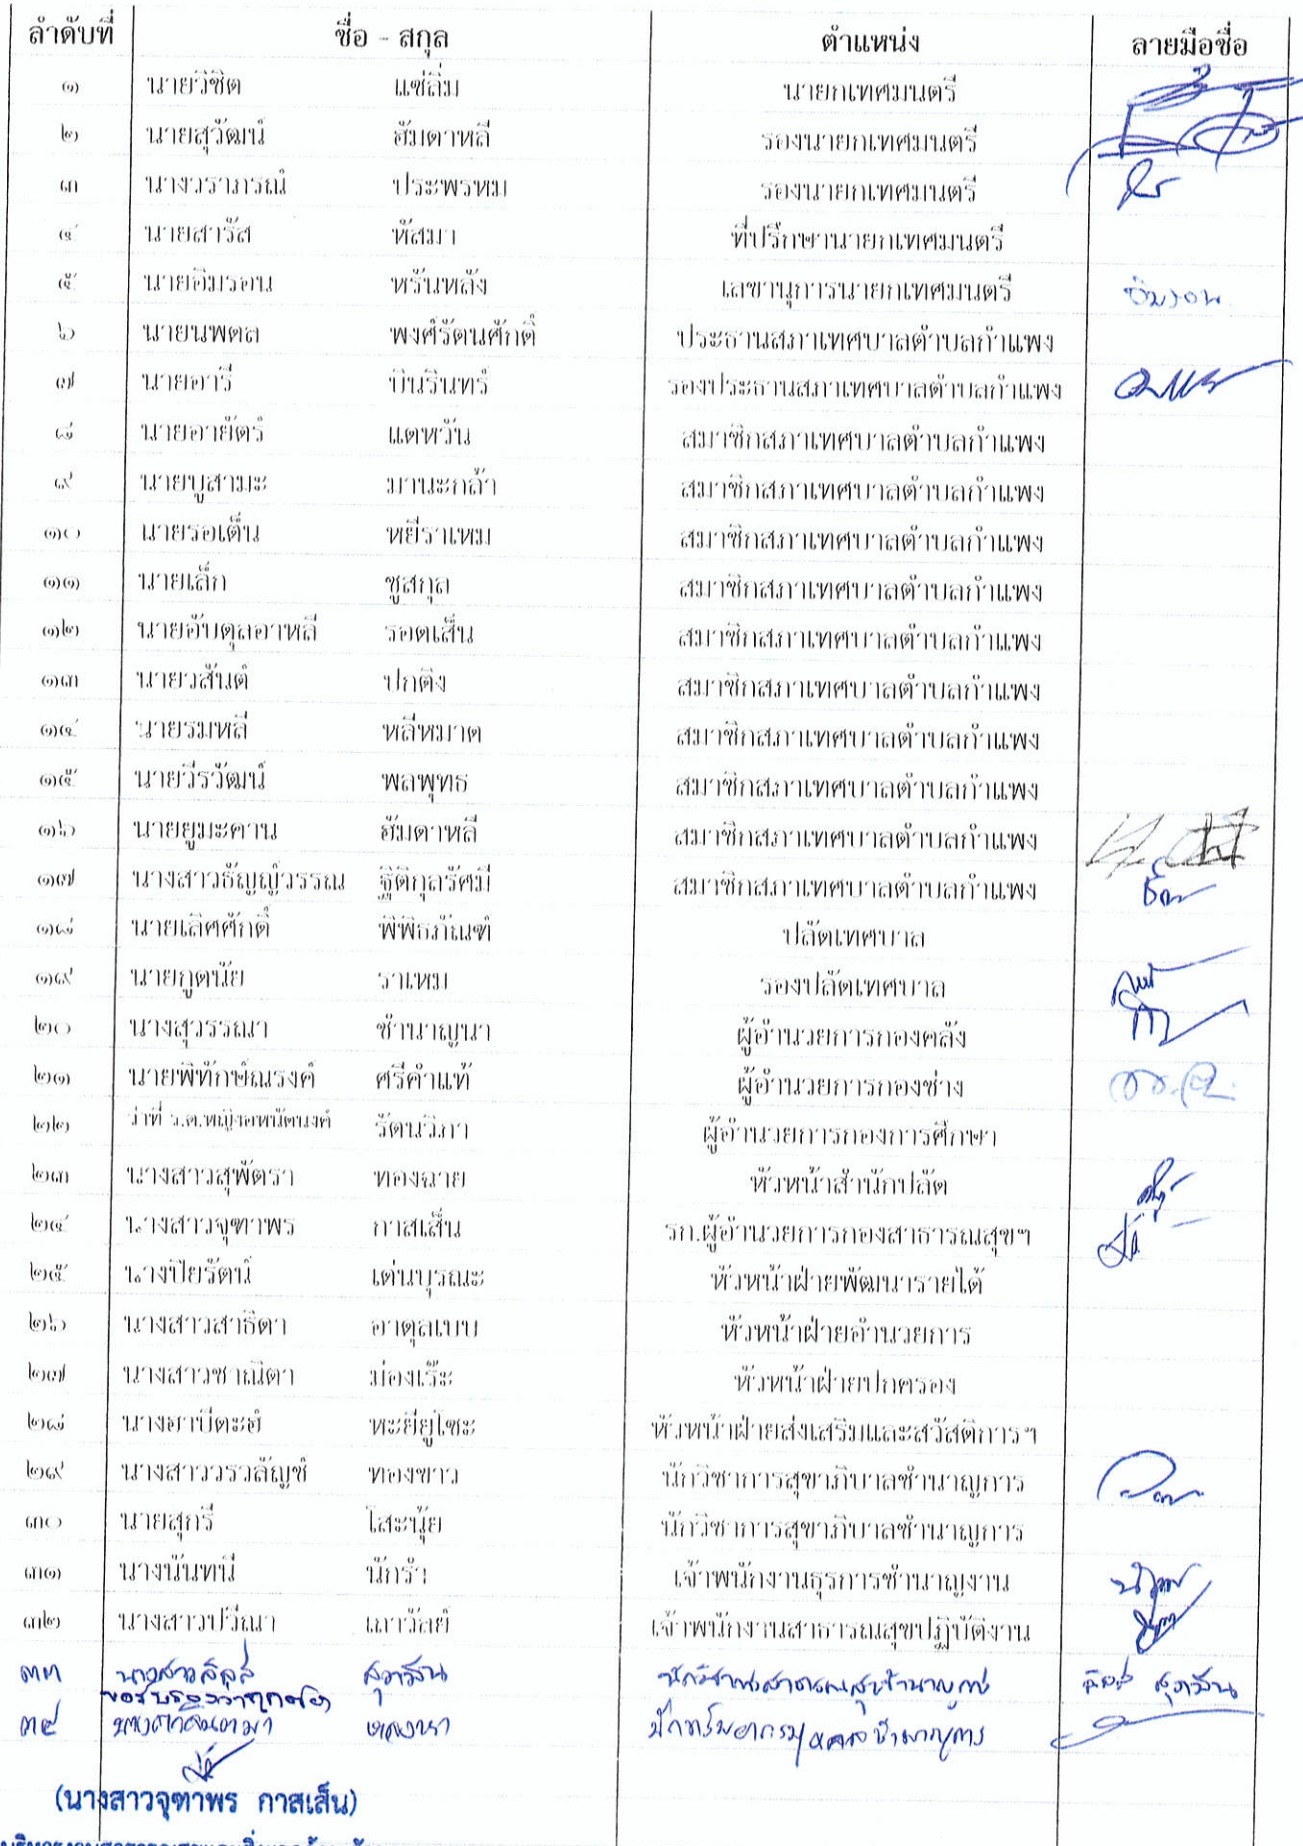 ลำดับที่ ชื่อ - สกุล ตำแหน่ง ลายมือชื่อ
๑ นายวิชิต แซ่ลิ่ม นายกเทศมนตรี
๒ นายสุวัฒน์ ฮัมดาหลี รองนายกเทศมนตรี
๓ นางวราภรณ์ ประพรหม รองนายกเทศมนตรี
๔ นายสารัส หัสมา ที่ปรึกษานายกเทศมนตรี
๕ นายอิมรอน หรันหลัง เลขานุการนายกเทศมนตรี อิมรอน
๖ นายนพดล พงศ์รัตนศักดิ์ ประธานสภาเทศบาลตำบลกำแพง
๗ นายอารี บินรินทร์ รองประธานสภาเทศบาลตำบลกำแพง
๘ นายอายัตร์ แดหวัน สมาชิกสภาเทศบาลตำบลกำแพง
๙ นายบูสามะ มานะกล้า สมาชิกสภาเทศบาลตำบลกำแพง
๑๐ นายรอเต็น หยีราเหม สมาชิกสภาเทศบาลตำบลกำแพง
๑๑ นายเล็ก ชูสกุล สมาชิกสภาเทศบาลตำบลกำแพง
๑๒ นายอับดุลอาหลี รอดเส็น สมาชิกสภาเทศบาลตำบลกำแพง
๑๓ นายวสันต์ ปกติง สมาชิกสภาเทศบาลตำบลกำแพง
๑๔ นายรมหลี หลีหมาด สมาชิกสภาเทศบาลตำบลกำแพง
๑๕ นายวีรวัฒน์ พลพุทธ สมาชิกสภาเทศบาลตำบลกำแพง
๑๖ นายยูมะดาน ฮัมดาหลี สมาชิกสภาเทศบาลตำบลกำแพง
๑๗ นางสาวธัญญ์วรรณ ฐิติกุลรัศมี สมาชิกสภาเทศบาลตำบลกำแพง
๑๘ นายเลิศศักดิ์ พิพิธภัณฑ์ ปลัดเทศบาล
๑๙ นายกูดนัย ราเหม รองปลัดเทศบาล
๒๐ นางสุวรรณา ชำนาญนา ผู้อำนวยการกองคลัง
๒๑ นายพิทักษ์ณรงค์ ศรีคำแท้ ผู้อำนวยการกองช่าง
๒๒ ว่าที่ ร.ต.หญิง รัตนวิภา ผู้อำนวยการกองการศึกษา
๒๓ นางสาวสุพัตรา ทองฉาย หัวหน้าสำนักปลัด
๒๔ นางสาวจุฑาพร กาสเส็น รก.ผู้อำนวยการกองสาธารณสุขฯ
๒๕ นางปิยรัตน์ เด่นบุรณะ หัวหน้าฝ่ายพัฒนารายได้
๒๖ นางสาวสาธิตา อาดุลเบบ หัวหน้าฝ่ายอำนวยการ
๒๗ นางสาวซาณิตา ม่องเร๊ะ หัวหน้าฝ่ายปกครอง
๒๘ นางฮาบีตะฮ์ หะยียูโซะ หัวหน้าฝ่ายส่งเสริมและสวัสดิการฯ
๒๙ นางสาววรวลัญช์ ทองขาว นักวิชาการสุขาภิบาลชำนาญการ
๓๐ นายสุกรี โสะนุ้ย นักวิชาการสุขาภิบาลชำนาญการ
๓๑ นางนันทนี นักรำ เจ้าพนักงานธุรการชำนาญงาน
๓๒ นางสาวปวีณา เถาวัลย์ เจ้าพนักงานสาธารณสุขปฏิบัติงาน
๓๓ นางสาว นักวิชาการสาธารณสุขชำนาญการ
๓๔
(นางสาวจุฑาพร กาสเส็น)